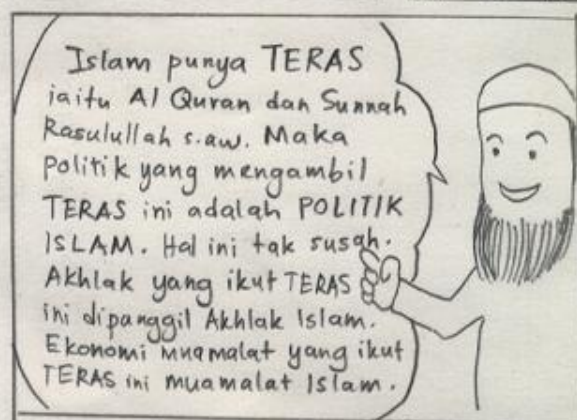 Islam punya TERAS
iaitu Al Quran dan Sunnah
Rasulullah s.aw. Maka
Politik yang mengambil
TERAS ini adalah POLITIK
ISLAM. Hal ini tak susah.
Akhlak yang ikut TERAS
ini dipanggil Akhlak Islam.
Ekonomi muamalat yang ikut
TERAS ini muamalat Islam.